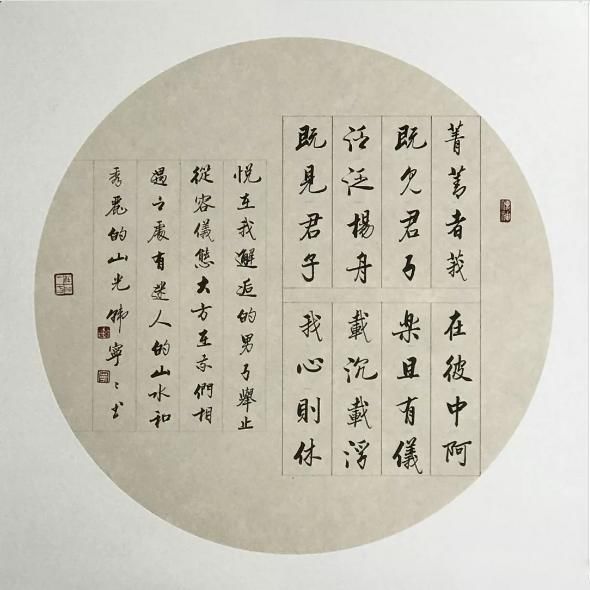 菁菁者莪在彼中阿
既见君子樂且有儀
泛泛楊舟載沉載浮
既見君子我心則休
悦在我邂逅的男子舉止
從容儀態大方在我們相
遇之處有迷人的山水和
秀麗的山光韩寧〻书